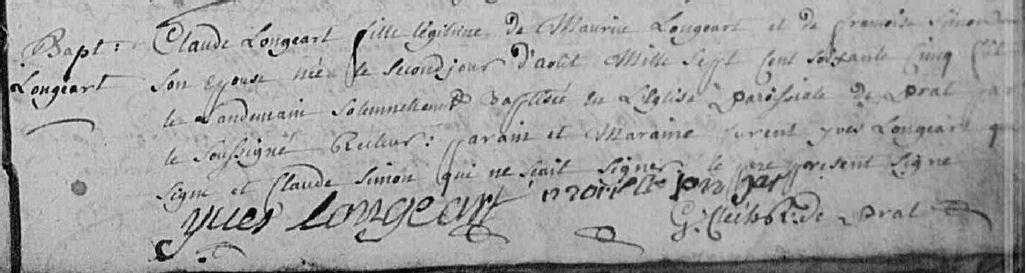 Bapt:
Longeart
Claude Longeart fille légitime de Maurice Longeart et de francoise Simon
son epouse née le second jour d'août Mille sept cent soixante Cinq fût
le Landemain Solemnellement Baptisée en L'Eglise paroissiale de prat par
le soussigné Recteur: parain et Maraine furent yves Longeart qui
signe et Claude Simon qui ne sçait signer le père présent signe
yves Longeart
G: de prat